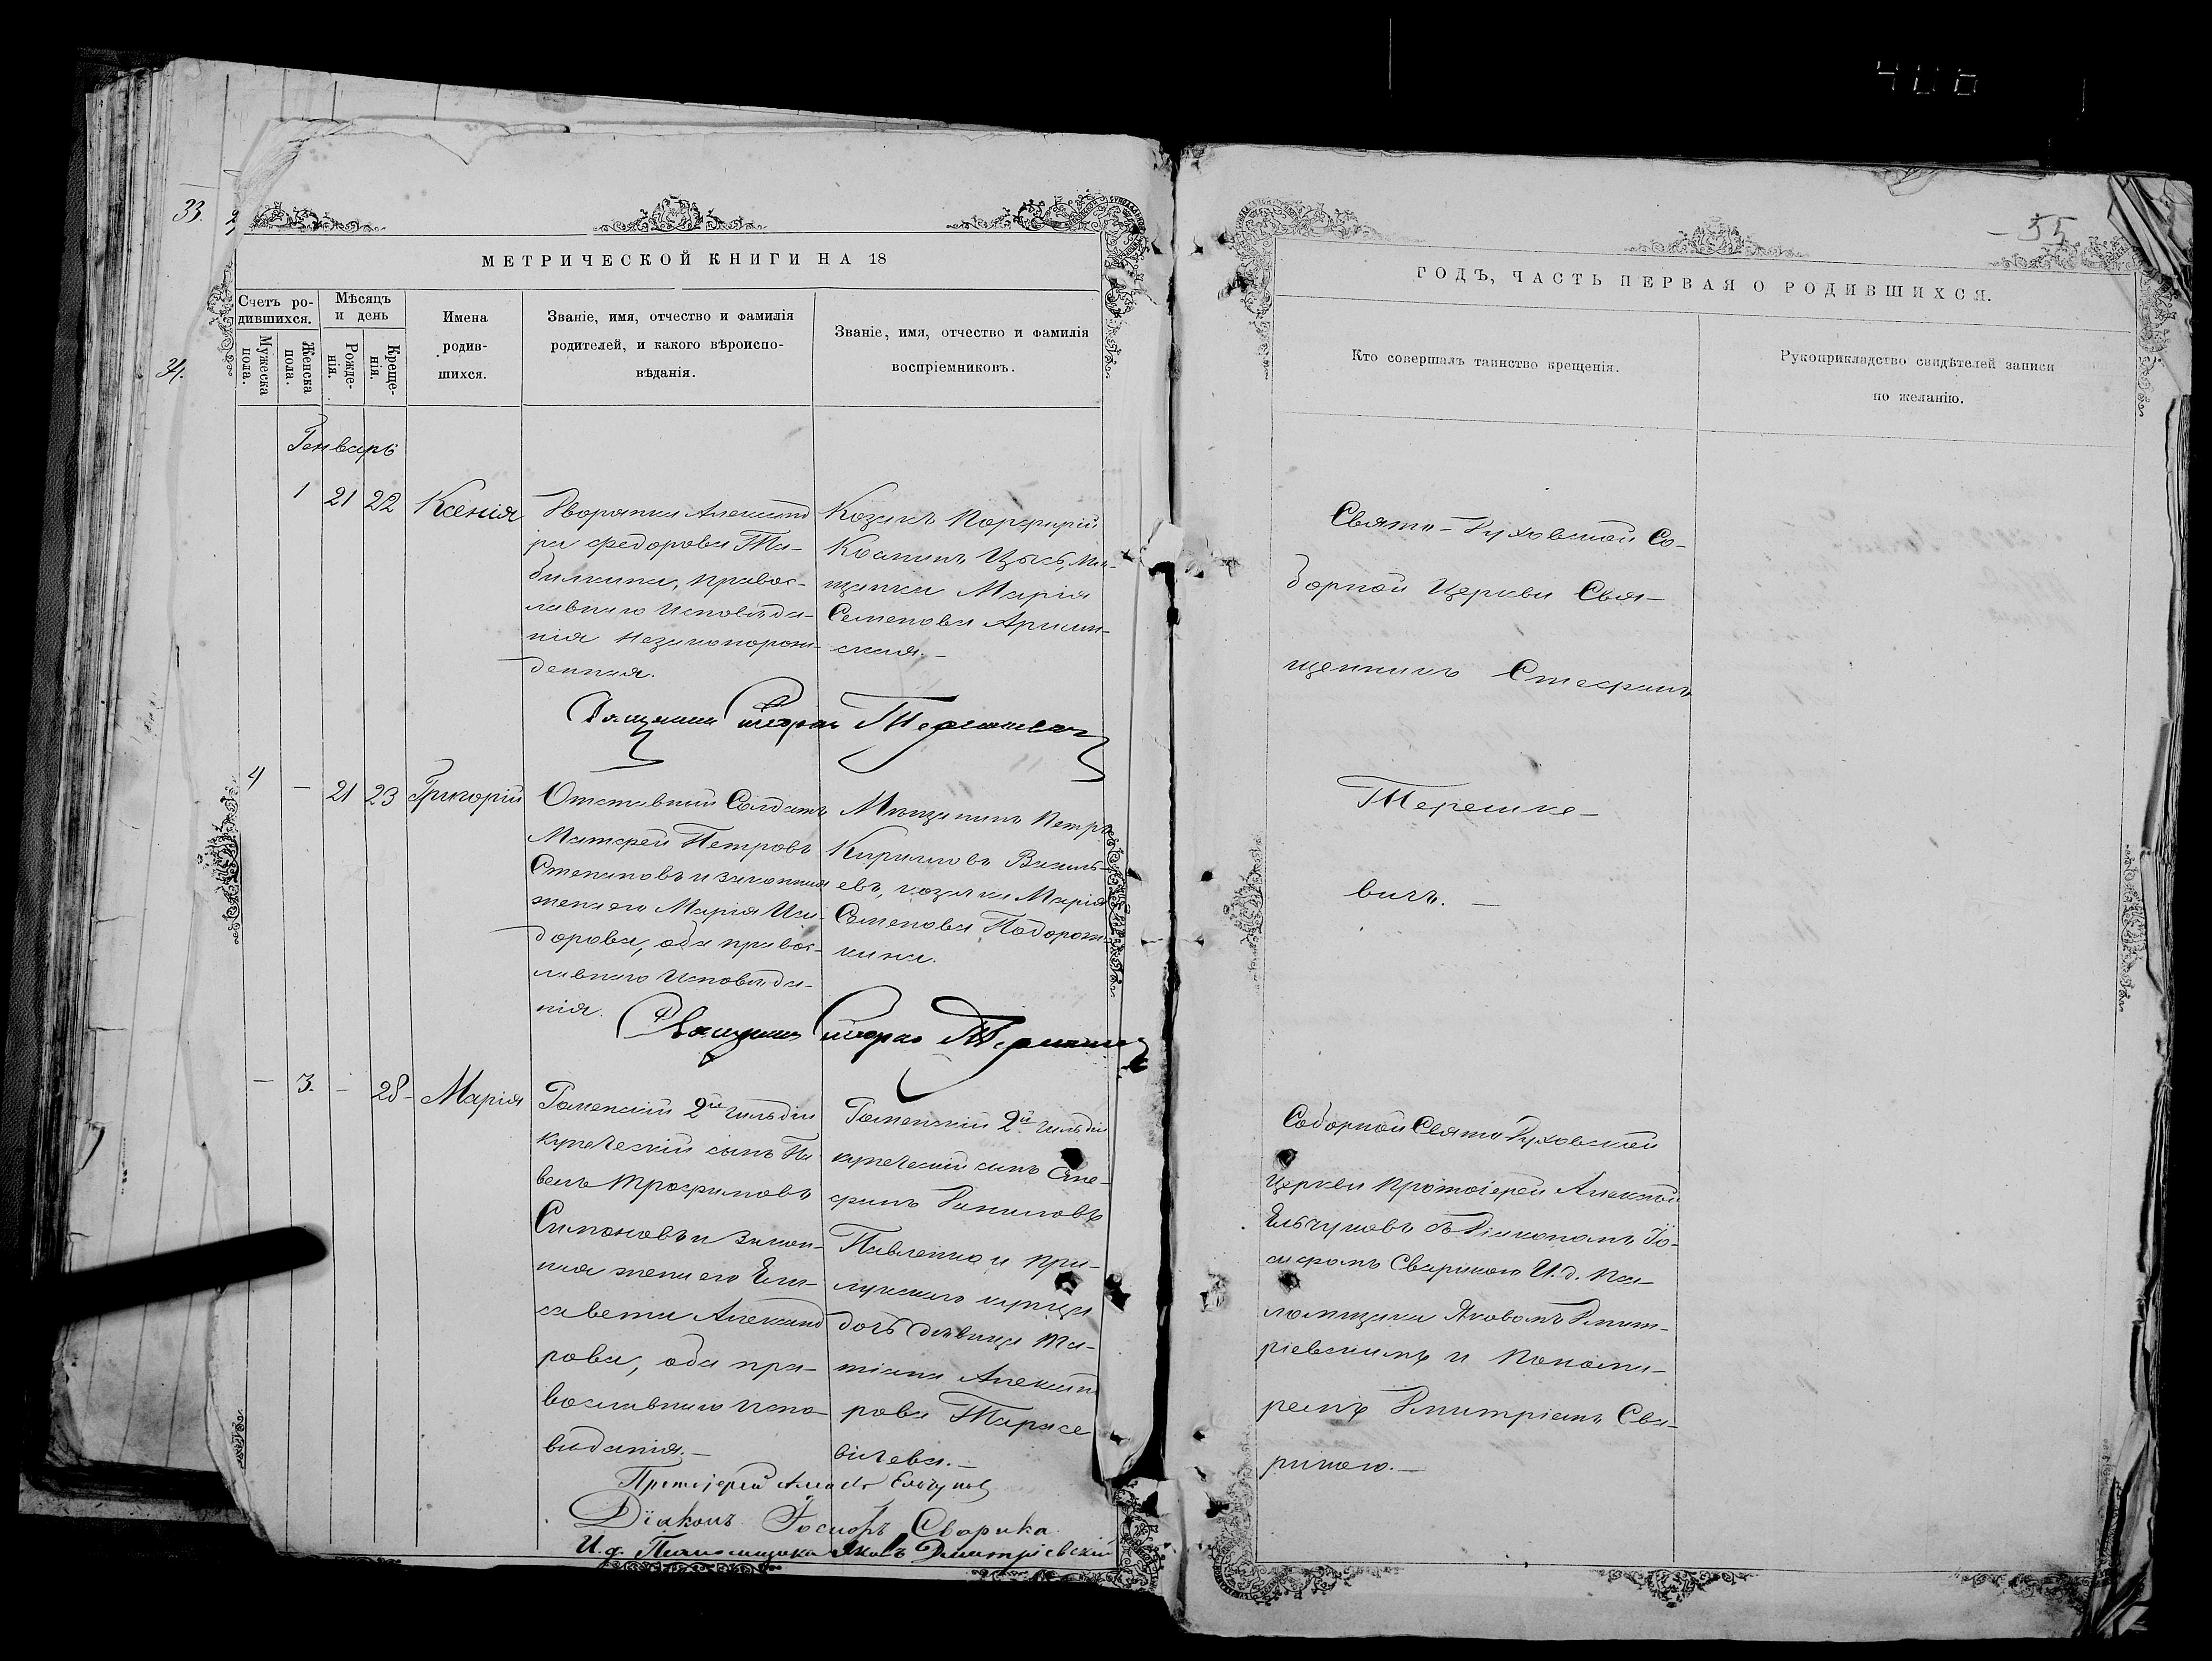 406
33.
34.
МЕТРИЧЕСКОЙ КНИГИ НА 18
Счетъ ро-
дившихся.
Мужеска
пола.
Женска
пола.
Мѣсяцъ
и день
Рожде-
нія.
Креще-
нія.
Имена
родив-
шихся.
Званіе, имя, отчество и фамилія
родителей, и какого вѣроиспо-
вѣданія.
Званіе, имя, отчество и фамилія
воспріемниковъ.
Генварь
1 21 22 Ксенія
Дворянка Александ
ра Федорова Та-
билкина, правос-
лавнаго исповѣда-
нія незаконорож-
денная.
Козакъ Порфирій
Цысь, мѣ-
щанка Марія
Семенова
ская.-
Священникъ Стефанъ Терешкевичъ
4 - 21 23 Григорій
Отставный Солдатъ
Матфей Петровъ
Степановъ и законная
жена его Марія Иси-
дорова, оба правос-
лавнаго исповѣда-
нія.
Мѣщанинъ Петръ
Кирилловъ Василь-
евъ, козачка Марія
Семенова Подорож-
кина.
Священникъ Стефанъ Терешкевичъ
- 3. - 28- Марія
Роменскій 2й гильдіи
купеческій сынъ Па
велъ Трофимовъ
Симоновъ и закон-
ная жена его Ели-
савета Александ
рова, оба пра-
вославнаго испо-
виданія.-
Роменскій 2й гильдіи
купеческій сынъ Сте-
фанъ Даниловъ
Павленко и При-
лукскаго купца
дочь дѣвица Та-
тіана Александ
рова Тарасе
вичева.-
Протоіерей Алексѣй Ельчуковъ
Діаконъ Іосифъ Сварика
И.д. Псаломщика Яковъ Дмитріевскій
55
ГОДЪ, ЧАСТЬ ПЕРВАЯ О РОДИВШИХСЯ.
Кто совершалъ таинство крещенія.
Рукоприкладство свидѣтелей записи
по желанію.
Свято-Духовской Со-
борной Церкви Свя-
щенникъ Стефанъ
Терешке-
вичъ.-
Соборной Свято Духовской
Церкви Протоіерей Алексѣй
Ельчуковъ съ Діакономъ Іо-
сифомъ Сварикою И.д. Пса-
ломщика Яковомъ Дмит-
ріевскимъ и Понома-
ремъ Дмитріемъ Сва-
рикою.-